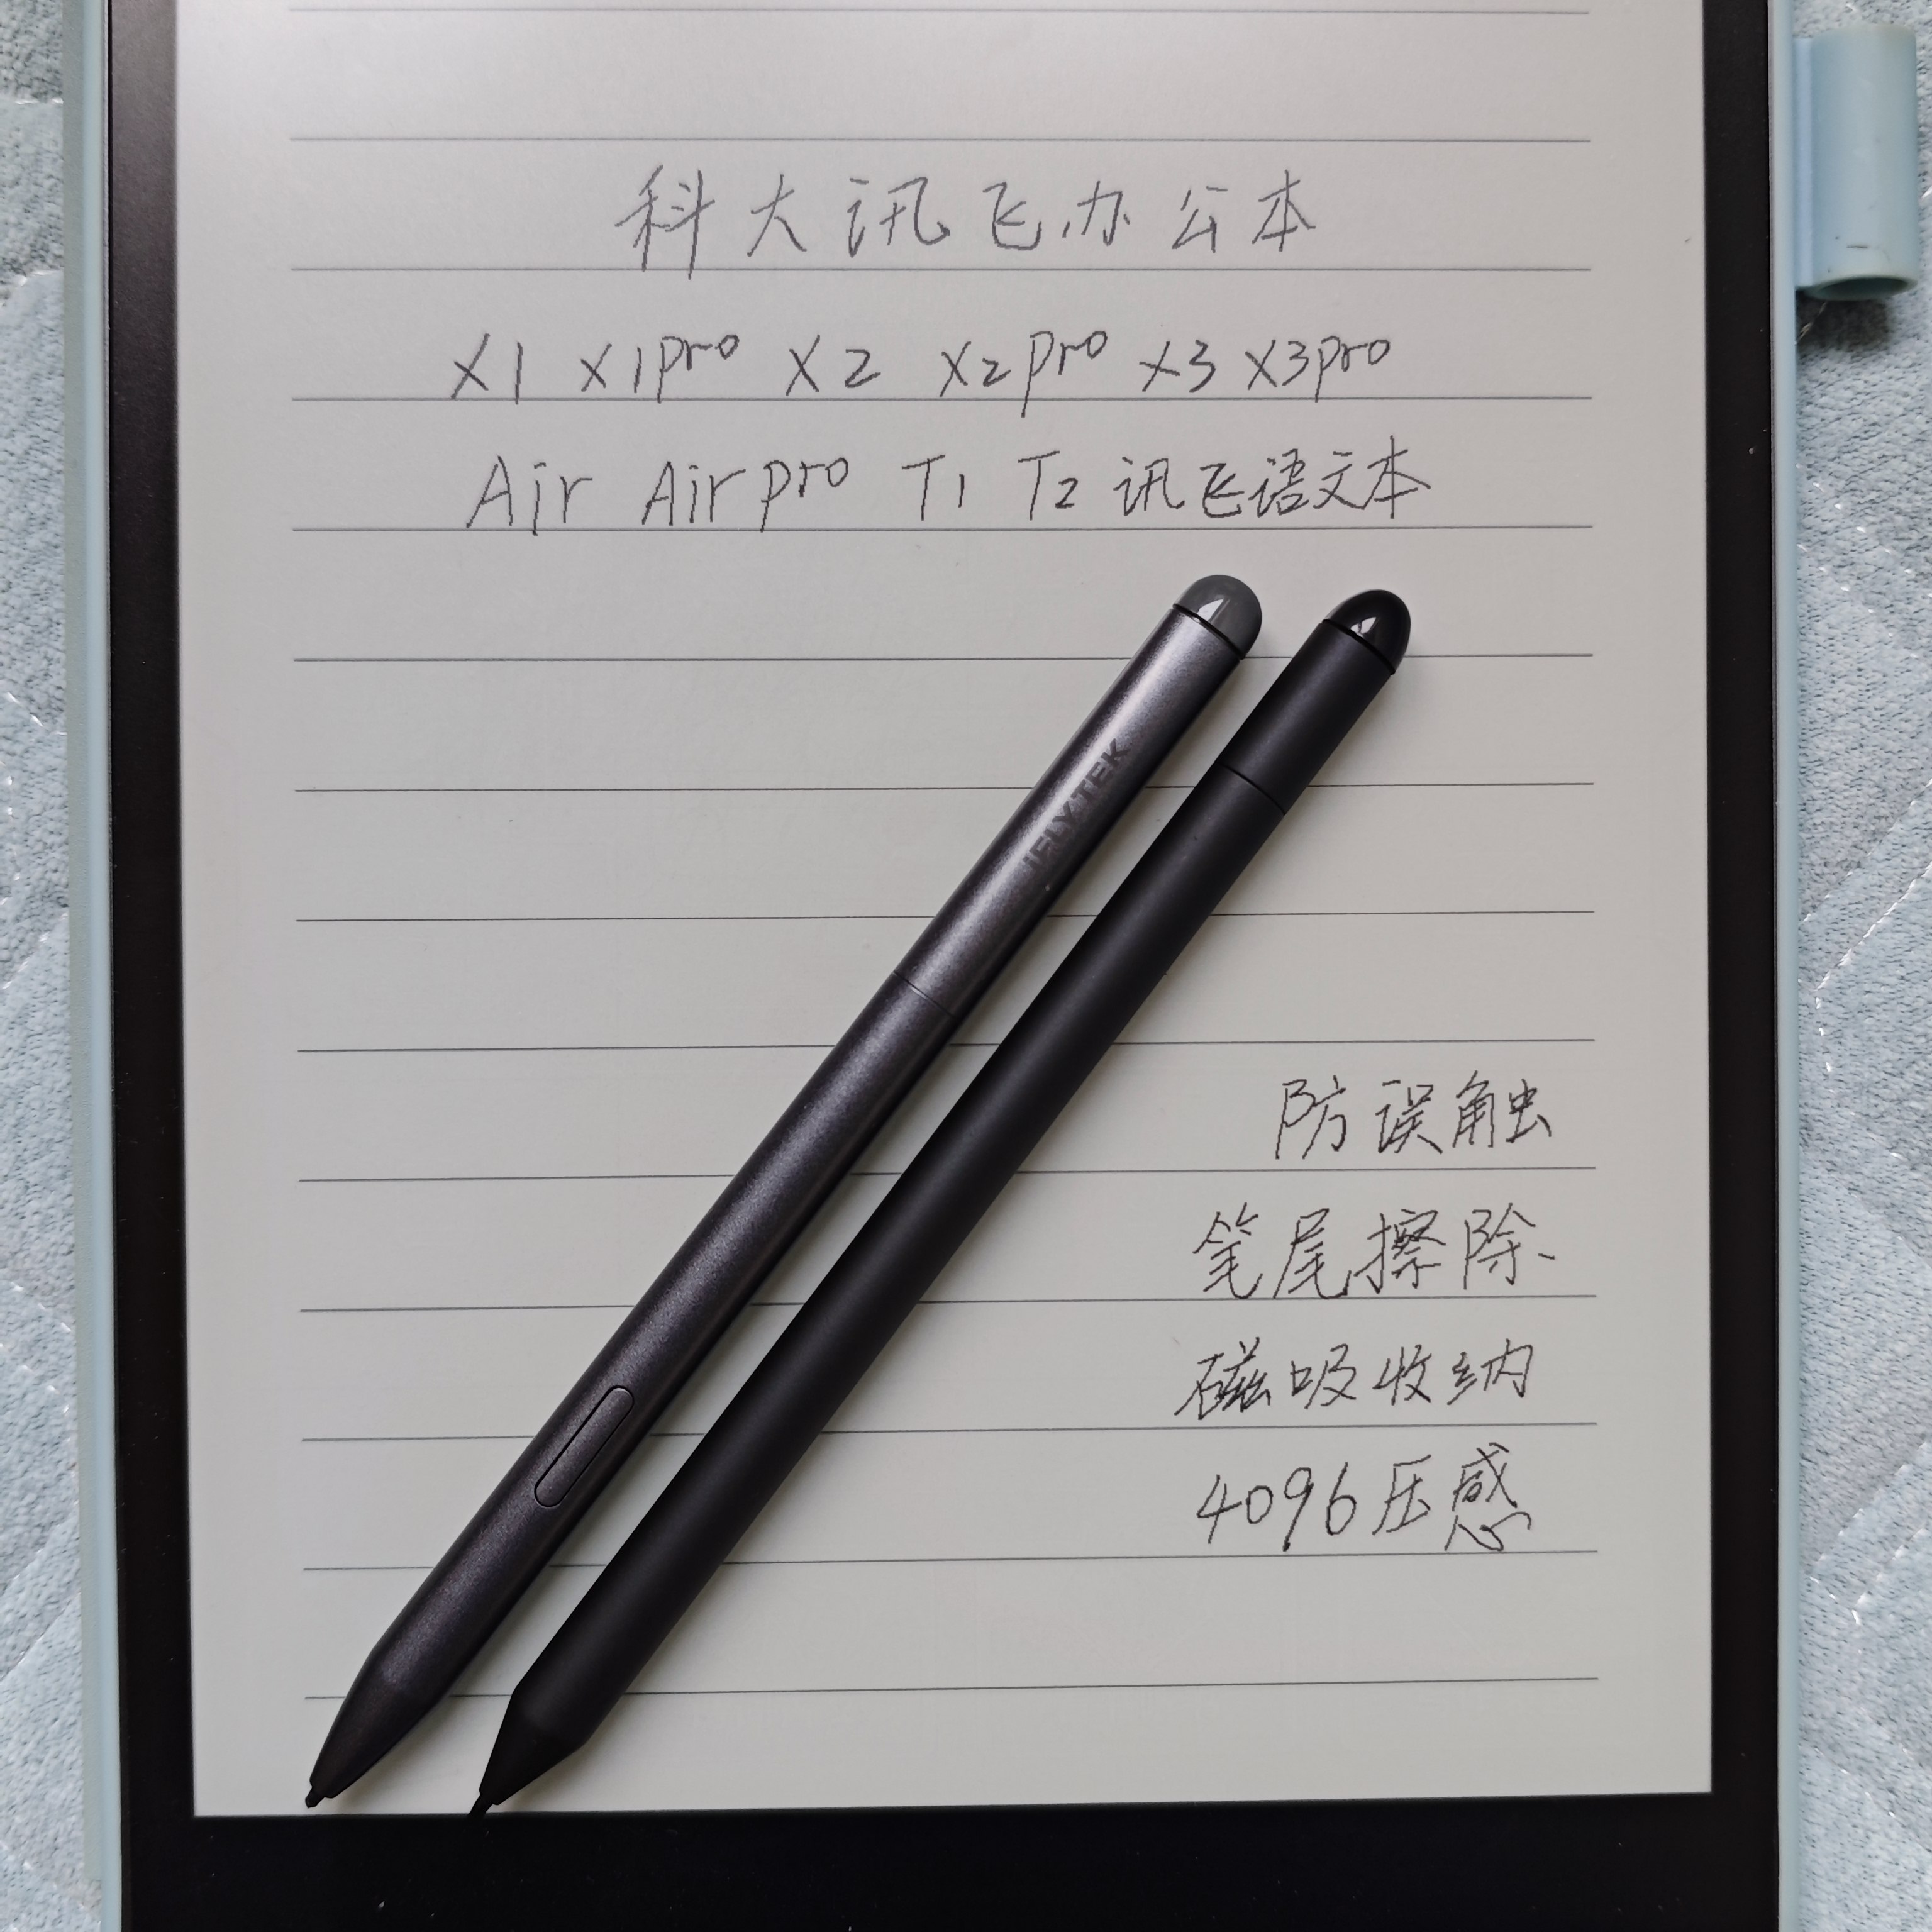 科大讯飞办公本
X1 X1pro X2 X2pro X3 X3pro
Air Airpro T1 T2 讯飞语文本
iFLYTEK
防误触
笔尾擦除
磁吸收纳
4096压感